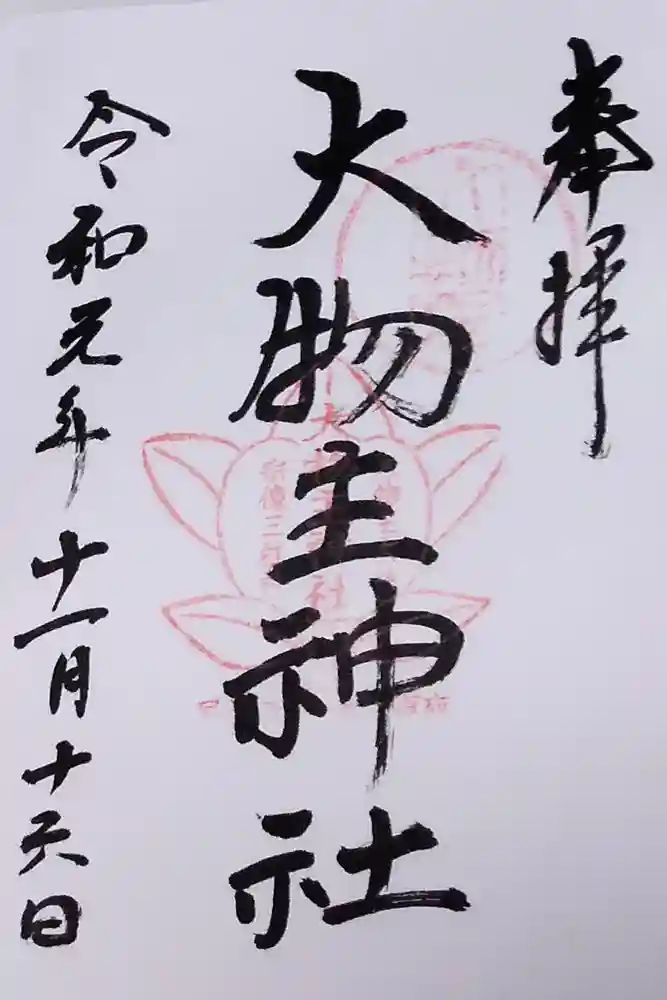 奉拝
大物主神社
令和元年十一月十六日